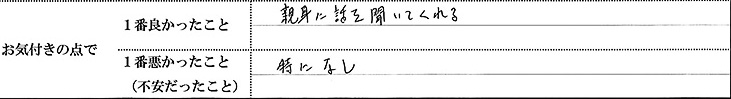 お気付きの点で
1番良かったこと
親身に話を聞いてくれる
1番悪かったこと
(不安だったこと)
特になし